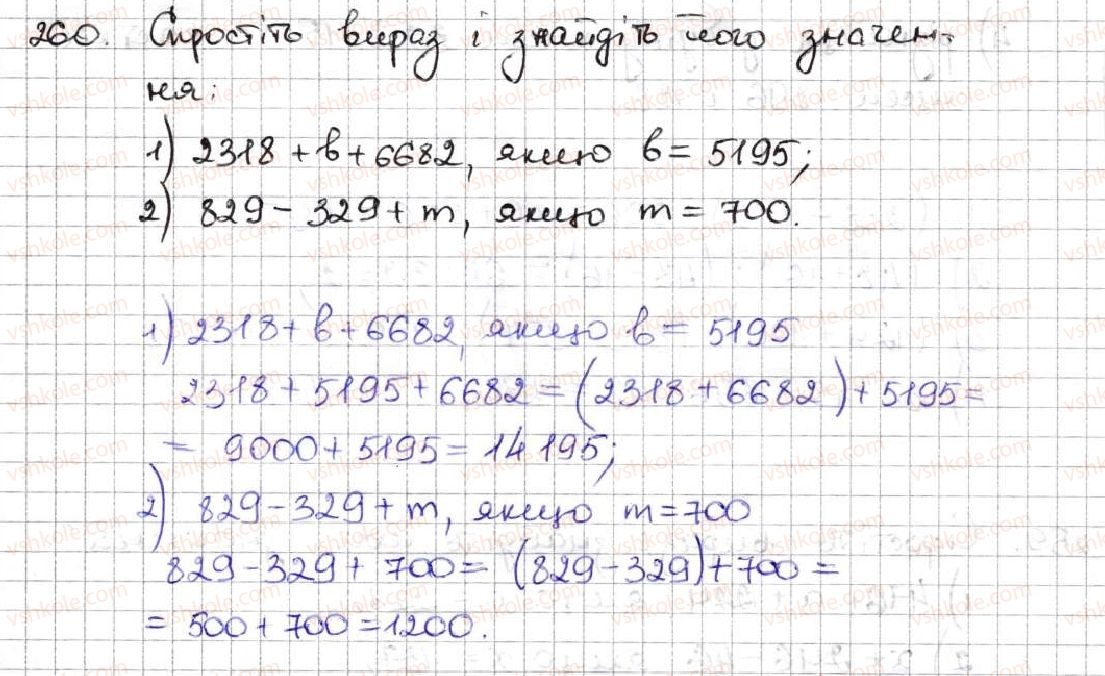 260. Спростіть вираз і знайдіть його значен-
ня:
1) 2318 + b + 6682, якщо b = 5195;
2) 829 - 329 + m, якщо m = 700.
1) 2318 + b + 6682, якщо b = 5195
2318 + 5195 + 6682 = (2318 + 6682) + 5195 =
= 9000 + 5195 = 14 195;
2) 829 - 329 + m, якщо m = 700
829 - 329 + 700 = (829 - 329) + 700 =
= 500 + 700 = 1200.